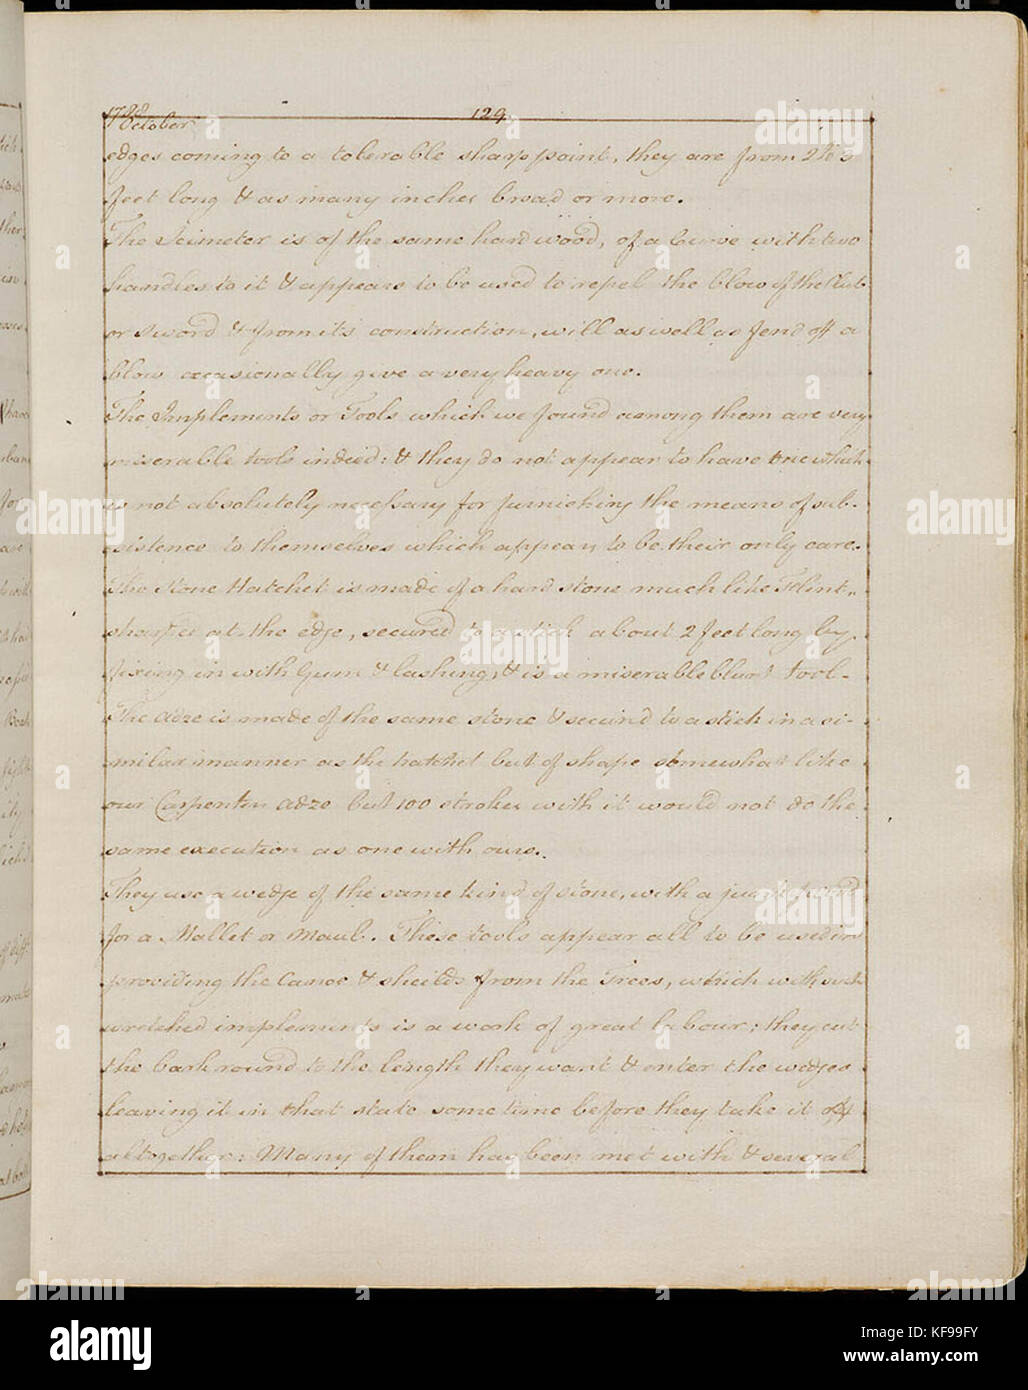 1788
October
129
edges coming to a tolerable sharp point, they are from 2 to 3
feet long & as many inches broad or more.
The Scimeter is of the same hard wood, of a Curve with two
handles to it & appears to be used to repel the blow of the Club
or Sword & from its construction, will as well as fend off a
blow occasionally give a very heavy one.
The Implements or Tools which we found among them are very
miserable tools indeed: & they do not appear to have one which
is not absolutely necessary for furnishing the means of sub-
sistence to themselves which appears to be their only care.
The Stone Hatchet is made of a hard stone much like Flint,
sharped at the edge, secured to a stick about 2 feet long by
fixing in with Gum & lashing, & is a miserable blunt tool-
The adze is made of the same stone & secured to a stick in a si-
milar manner as the hatchet but of shape somewhat like
our Carpenters adze but 100 strokes with it would not do the
same execution as one with ours.
They use a wedge of the same kind of stone, with a
for a Mallet or Maul. These tools appear all to be used in
providing the Canoe & sheilds from the Trees, which with such
wretched implements is a work of great labour; they cut
the bark round to the length they want & enter the wedges
leaving it in that state some time before they take it off
altogether: Many of them has been met with & several
alamy
Image ID: KF99FY
www.alamy.com